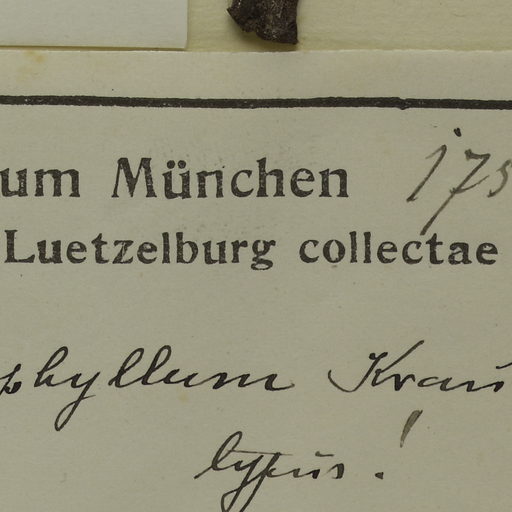 um München 175
Luetzelburg collectae
phyllum Krau
typus!